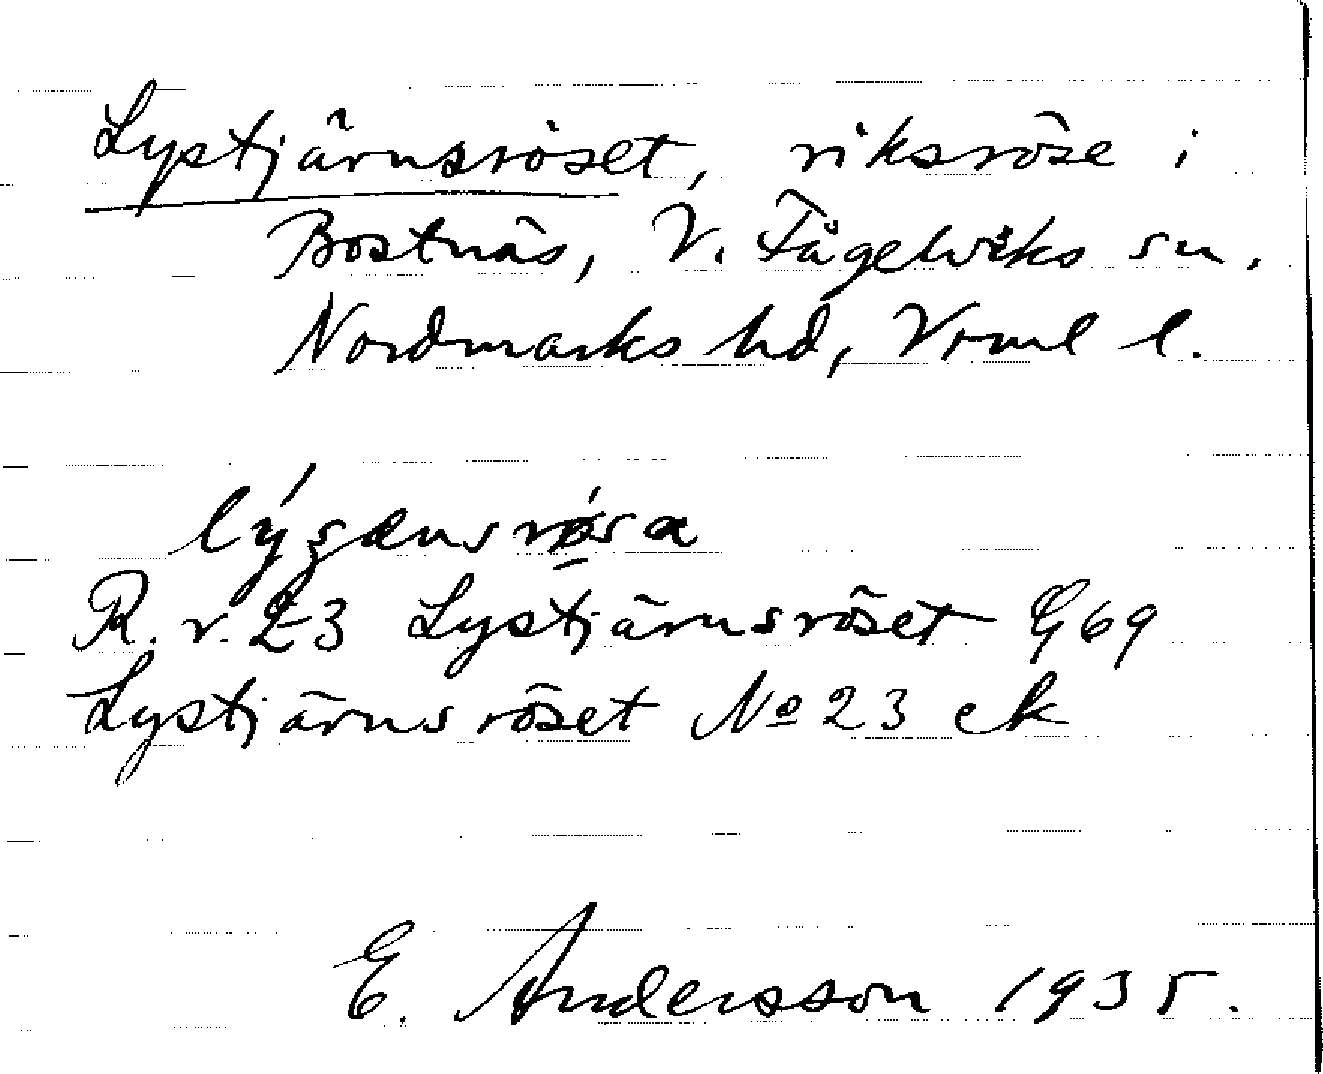 Lystjärnsröset, riksröse i
Bostnäs, V. Fågelviks sn.
Nordmarks hd, Vrml l.
R. r. 23 Lystjärnsröset G 69
Lystjärnsröset № 23 ek
E. Andersson 1935.